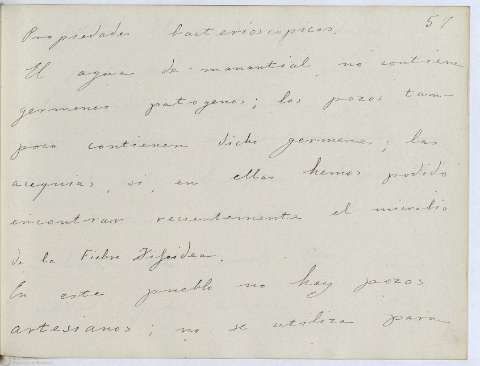 57
Propiedades bacterioscopicas.
El agua de manantial no contiene
germenes patogenos; los pozos tam-
poco contienen dichos germenes; las
acequias, si, en ellas hemos podido
encontrar recientemente el microbio
de la Fiebre Tifoidea.
En este pueblo no hay pozos
artesianos; no se utiliza para